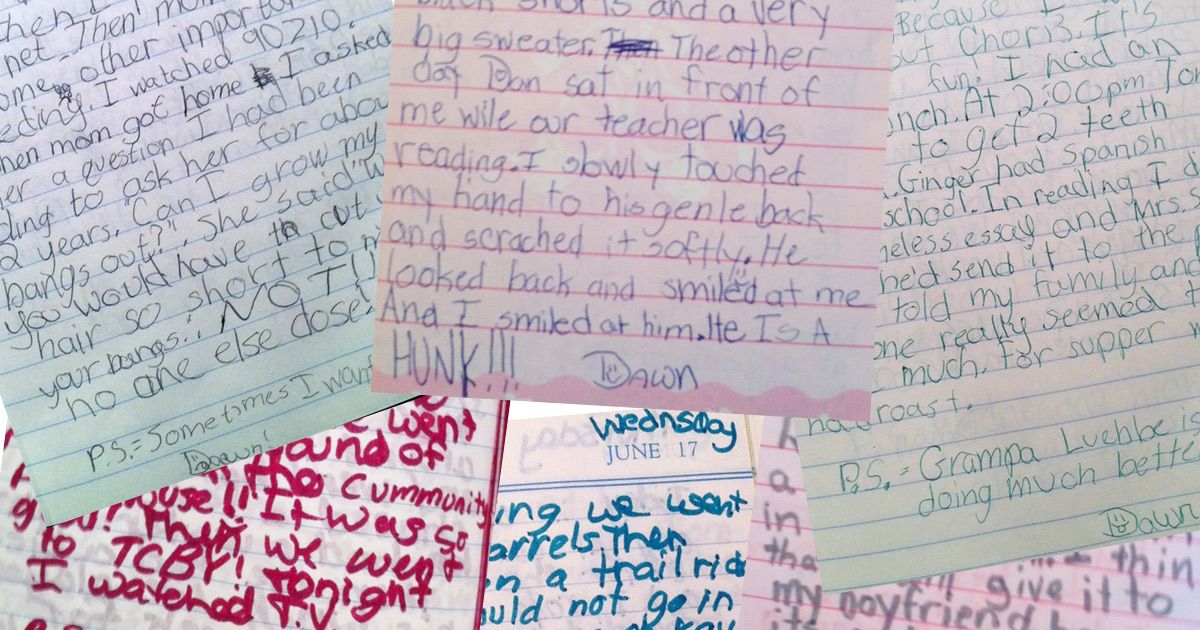 net. Then mom
some other importa
eeding. I watched 90210.
hen mom got home I asked
her a question I had been
ding to ask her for abou
2 years. Can I grow my
bangs out?". She said "W
you would have to cut
hair so short to m
your bangs." NOT!!
no one else dose!
P.S.= Sometomes I wan
Dawn!
black shorts and a very
big sweater. Then The other
day Dan sat in front of
me wile our teacher was
reading. I slowly touched
my hand to his genle back
and scrached it softly. He
looked back and smiled at me
And I smiled at him. He Is A
HUNK!!!
Dawn
Because I
out Chor13. It's
fun. I had an
unch. At 2:00pm Tom
to get 2 teeth
Ginger had Spanish
school. In reading I d
meless essay and Mrs.
he'd send it to the
told my family and
one really seemed t
much. For supper
had roast.
P.S.= Grampa Luehbe is
doing much bette
Dawn
went
ound of
the Cummunity
house!! It was so
Then we went
to TCBY!
I watched tonight
Wednsday
JUNE 17
ing we went
arrels Then
n a trail rid
ould not go in
a
in
tha
thin
give it to
my boyfriend